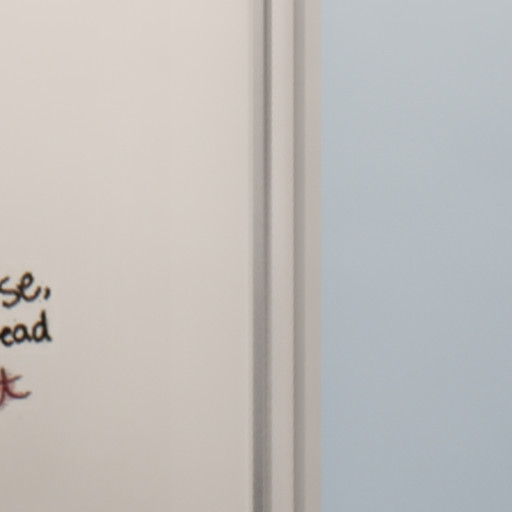 se,
ead
t